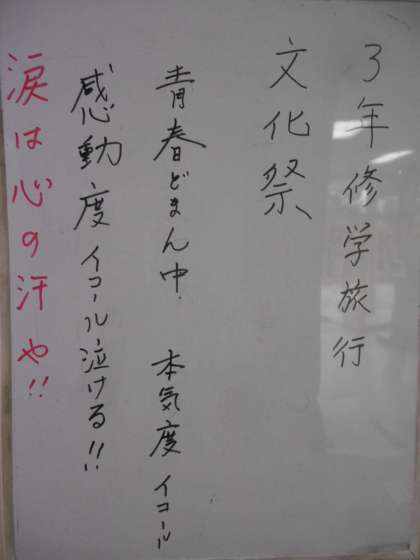 3年修学旅行
文化祭
青春どまん中 本気度イコール
感動度イコール泣ける!!
涙は心の汗や!!